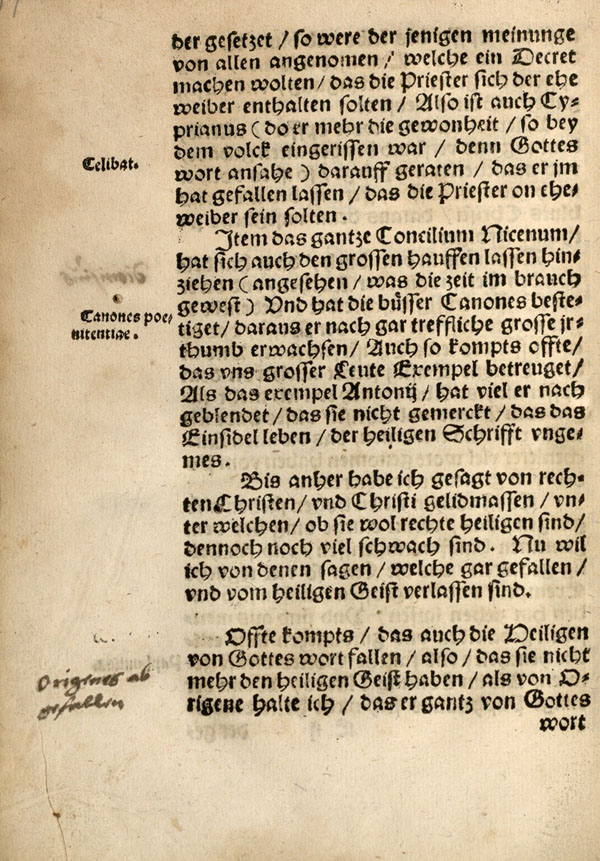 der gesetzet / so were der jenigen meinunge
von allen angenomen / welche ein Decret
machen wolten / das die Priester sich der ehe
weiber enthalten solten / Also ist auch Cy-
prianus ( do er mehr die gewonheit / so bey
dem volck eingerissen war / denn Gottes
Celibat.
wort ansahe ) darauff geraten / das er jm
hat gefallen lassen / das die Priester on ehe-
weiber sein solten .
Item das gantze Concilium Nicenum /
hat sich auch den grossen hauffen lassen hin-
ziehen ( angesehen / was die zeit im brauch
gewest ) Vnd hat die büsser Canones beste-
Canones poe-
nitentiae .
tiget / daraus er nach gar treffliche grosse jr-
thumb erwachsen / Auch so kompts offte /
das vns grosser Leute Exempel betreuget /
Als das exempel Antonij / hat viel er nach
geblendet / das sie nicht gemerckt / das das
Einsidel leben / der heiligen Schrifft vnge-
mes .
Bis anher habe ich gesagt von rech-
ten Christen / vnd Christi gelidmassen / vn-
ter welchen / ob sie wol rechte heiligen sind /
dennoch noch viel schwach sind . Nu wil
ich von denen sagen / welche gar gefallen /
vnd vom heiligen Geist verlassen sind .
Offte kompts / das auch die Heiligen
von Gottes wort fallen / also / das sie nicht
Origenes ab
gefallen
mehr den heiligen Geist haben / als von O-
rigene halte ich / das er gantz von Gottes
wort